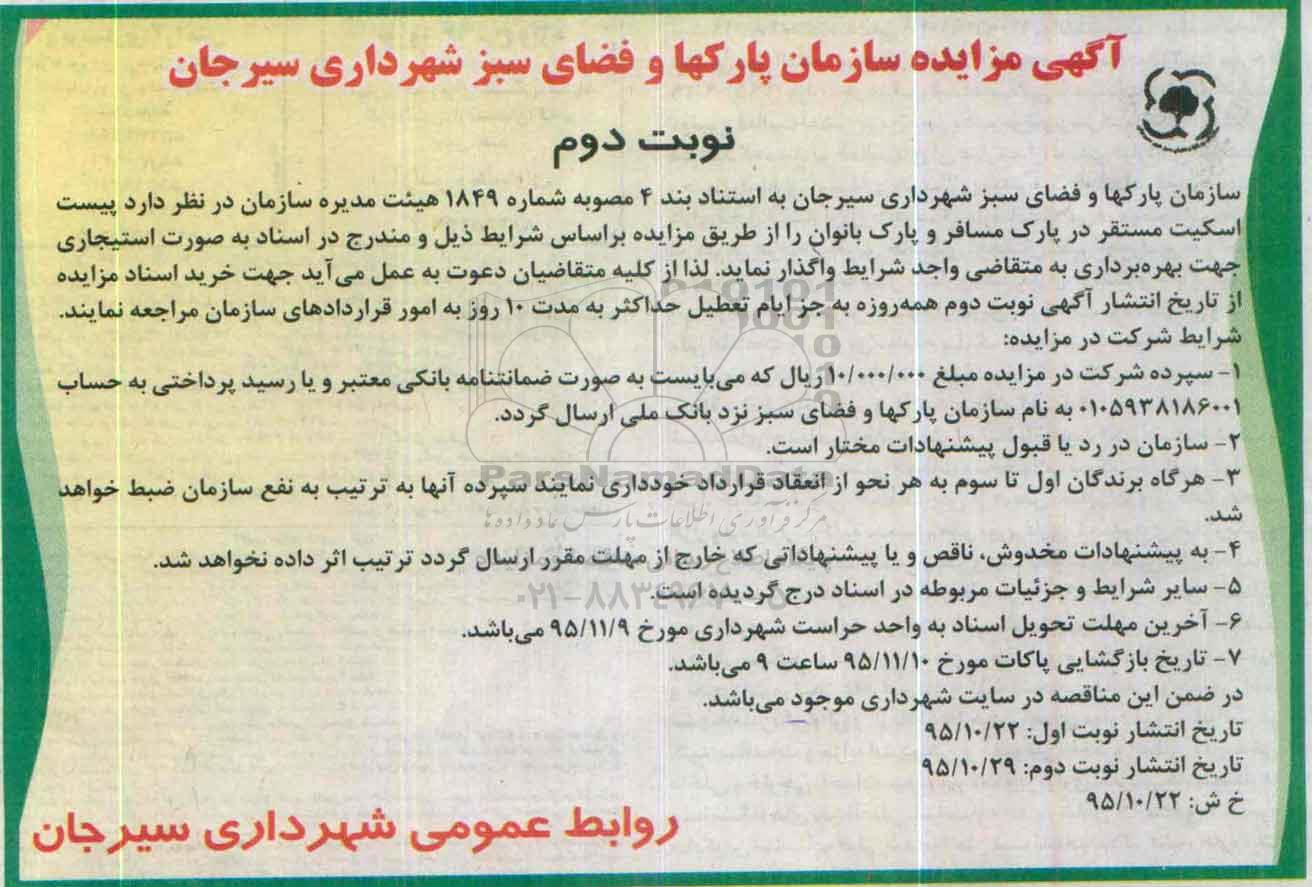 آگهی مزایده سازمان پارکها و فضای سبز شهرداری سیرجان
نوبت دوم
سازمان پارکها و فضای سبز شهرداری سیرجان به استناد بند ۴ مصوبه شماره ۱۸۴۹ هیئت مدیره سازمان در نظر دارد پیست
اسکیت مستقر در پارک مسافر و پارک بانوان را از طریق مزایده براساس شرایط ذیل و مندرج در اسناد به صورت استیجاری
جهت بهره‌برداری به متقاضی واجد شرایط واگذار نماید. لذا از کلیه متقاضیان دعوت به عمل می‌آید جهت خرید اسناد مزایده
از تاریخ انتشار آگهی نوبت دوم همه‌روزه به جز ایام تعطیل حداکثر به مدت ۱۰ روز به امور قراردادهای سازمان مراجعه نمایند.
شرایط شرکت در مزایده:
۱- سپرده شرکت در مزایده مبلغ ۱۰/۰۰۰/۰۰۰ ریال که می‌بایست به صورت ضمانتنامه بانکی معتبر و یا رسید پرداختی به حساب
۰۱۰۵۹۳۸۱۸۶۰۰۱ به نام سازمان پارکها و فضای سبز نزد بانک ملی ارسال گردد.
۲- سازمان در رد یا قبول پیشنهادات مختار است.
۳- هرگاه برندگان اول تا سوم به هر نحو از انعقاد قرارداد خودداری نمایند سپرده آنها به ترتیب به نفع سازمان ضبط خواهد
شد.
۴- به پیشنهادات مخدوش، ناقص و یا پیشنهاداتی که خارج از مهلت مقرر ارسال گردد ترتیب اثر داده نخواهد شد.
۵- سایر شرایط و جزئیات مربوطه در اسناد درج گردیده است.
۶- آخرین مهلت تحویل اسناد به واحد حراست شهرداری مورخ ۹۵/۱۱/۹ می‌باشد.
۷- تاریخ بازگشایی پاکات مورخ ۹۵/۱۱/۱۰ ساعت ۹ می‌باشد.
در ضمن این مناقصه در سایت شهرداری موجود می‌باشد.
تاریخ انتشار نوبت اول: ۹۵/۱۰/۲۲
تاریخ انتشار نوبت دوم: ۹۵/۱۰/۲۹
خ ش: ۹۵/۱۰/۲۲
روابط عمومی شهرداری سیرجان
ParsNamadData
مرکز فرآوری اطلاعات پارس نماد داده ها